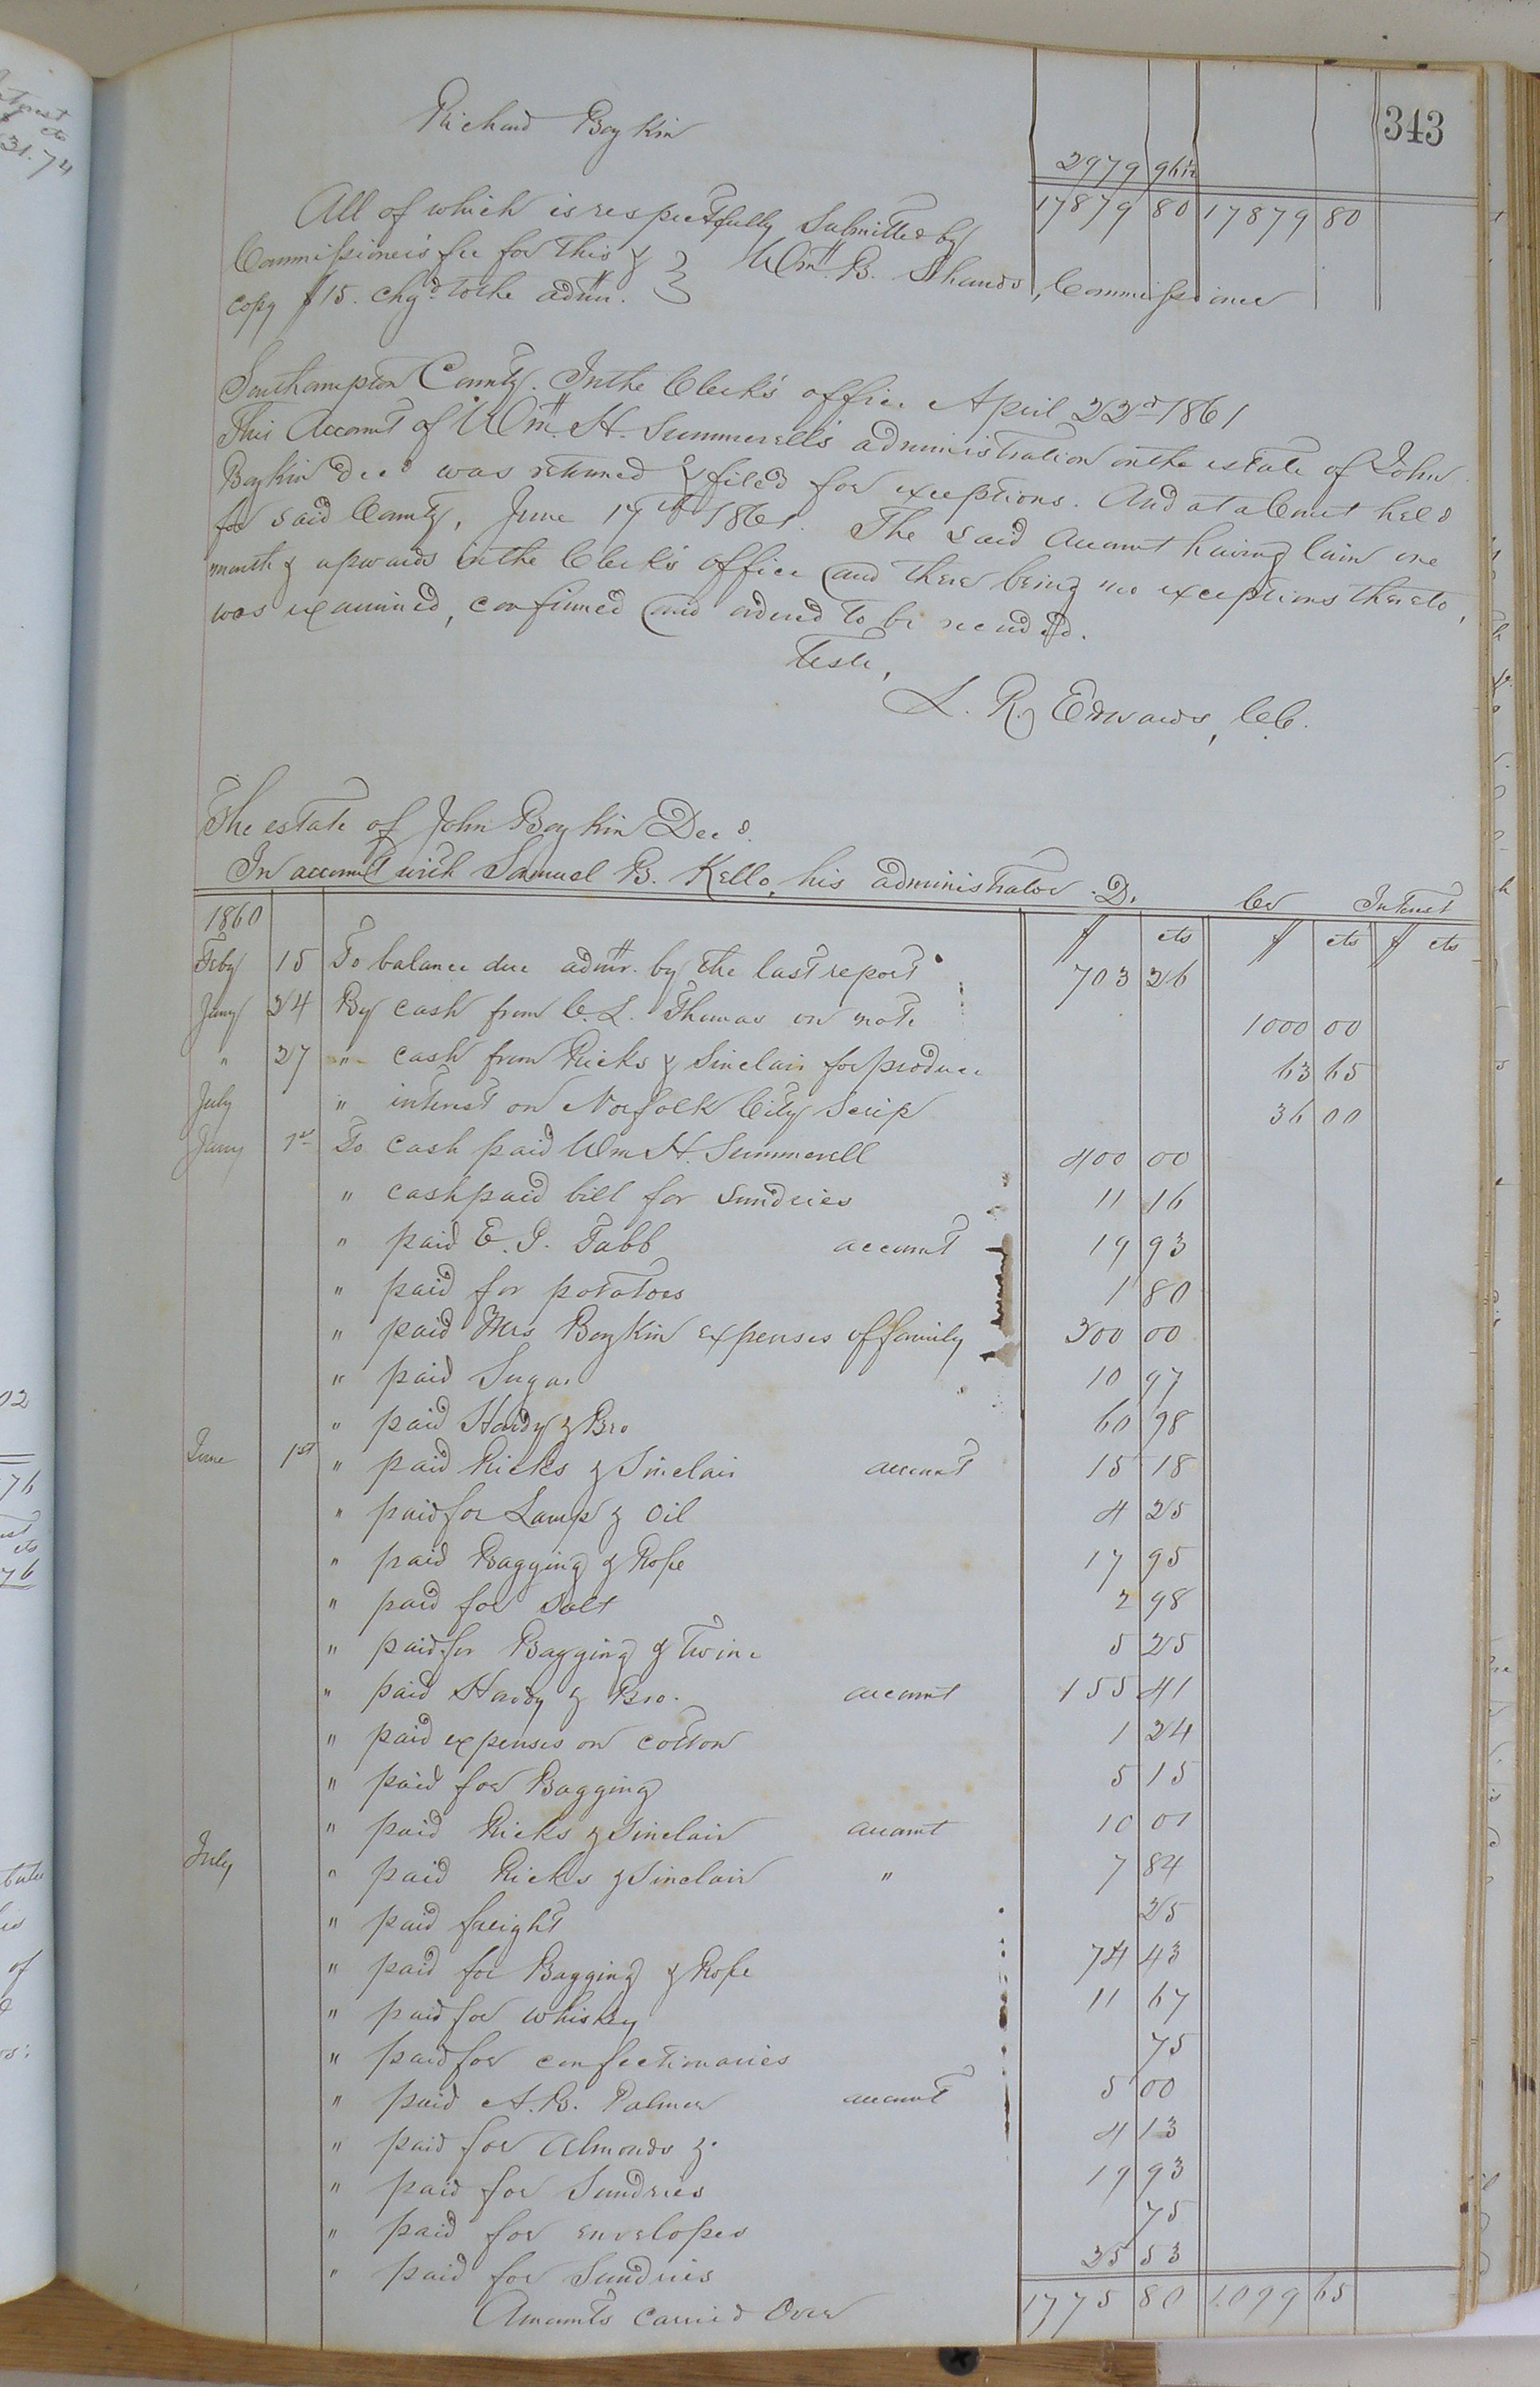 343
Richard Boykin
2979 96½
17879 80 17879 80
All of which is respectfully Submitted by
Commissioner's fee for this & } Wm. B. Shands, Commissioner
copy $15. chgd to the admr.
Southampton County. In the Clerk's office April 22nd 1861
This Account of Wm. H. Summerell's administration on the estate of John
Boykin Decd was returned & filed for exceptions. And at a Court held
for said County, June 17th 1861. The said Account having lain one
month & upwards in the Clerk's office and there being no exceptions thereto,
was examined, confirmed and ordered to be recorded.
Teste,
L. R. Edwards, C.C.
The estate of John Boykin Decd.
In account with Samuel B. Kello, his administrator. Dr. Cr Interest
1860 $ cts $ cts $ cts
Feby 15 To balance due admr. by the last report 703 26
Jany 24 By cash from C. L. Thomas on note 1000 00
" 27 " cash from Ricks & Sinclair for produce 63 65
July " interest on Norfolk City Scrip 36 00
Jany 1st To cash paid Wm H. Summerell 400 00
" cash paid bill for sundries 11 16
" paid E. J. Tabb account 19 93
" paid for potatoes 1 80
" paid Mrs Boykin expenses of family 300 00
" paid Sugar 10 97
" paid Hardy & Bro 60 98
June 1st " paid Ricks & Sinclair account 15 18
" paid for Lamp & Oil 4 25
" paid Bagging & Rope 17 95
" paid for Salt 2 98
" paid for Bagging & Twine 5 25
" paid Hardy & Bro. account 155 41
" paid expenses on cotton 1 24
" paid for Bagging 5 15
" paid Ricks & Sinclair account 10 01
July " paid Ricks & Sinclair " 7 84
" paid freight 25
" paid for Bagging & Rope 74 43
" paid for whiskey 11 67
" paid for confectionaries 75
" paid A. B. Palmer account 5 00
" paid for Almonds &. 4 13
" paid for Sundries 19 93
" paid for envelopes 75
" paid for Sundries 25 53
Amounts carried Over 1775 80 1099 65